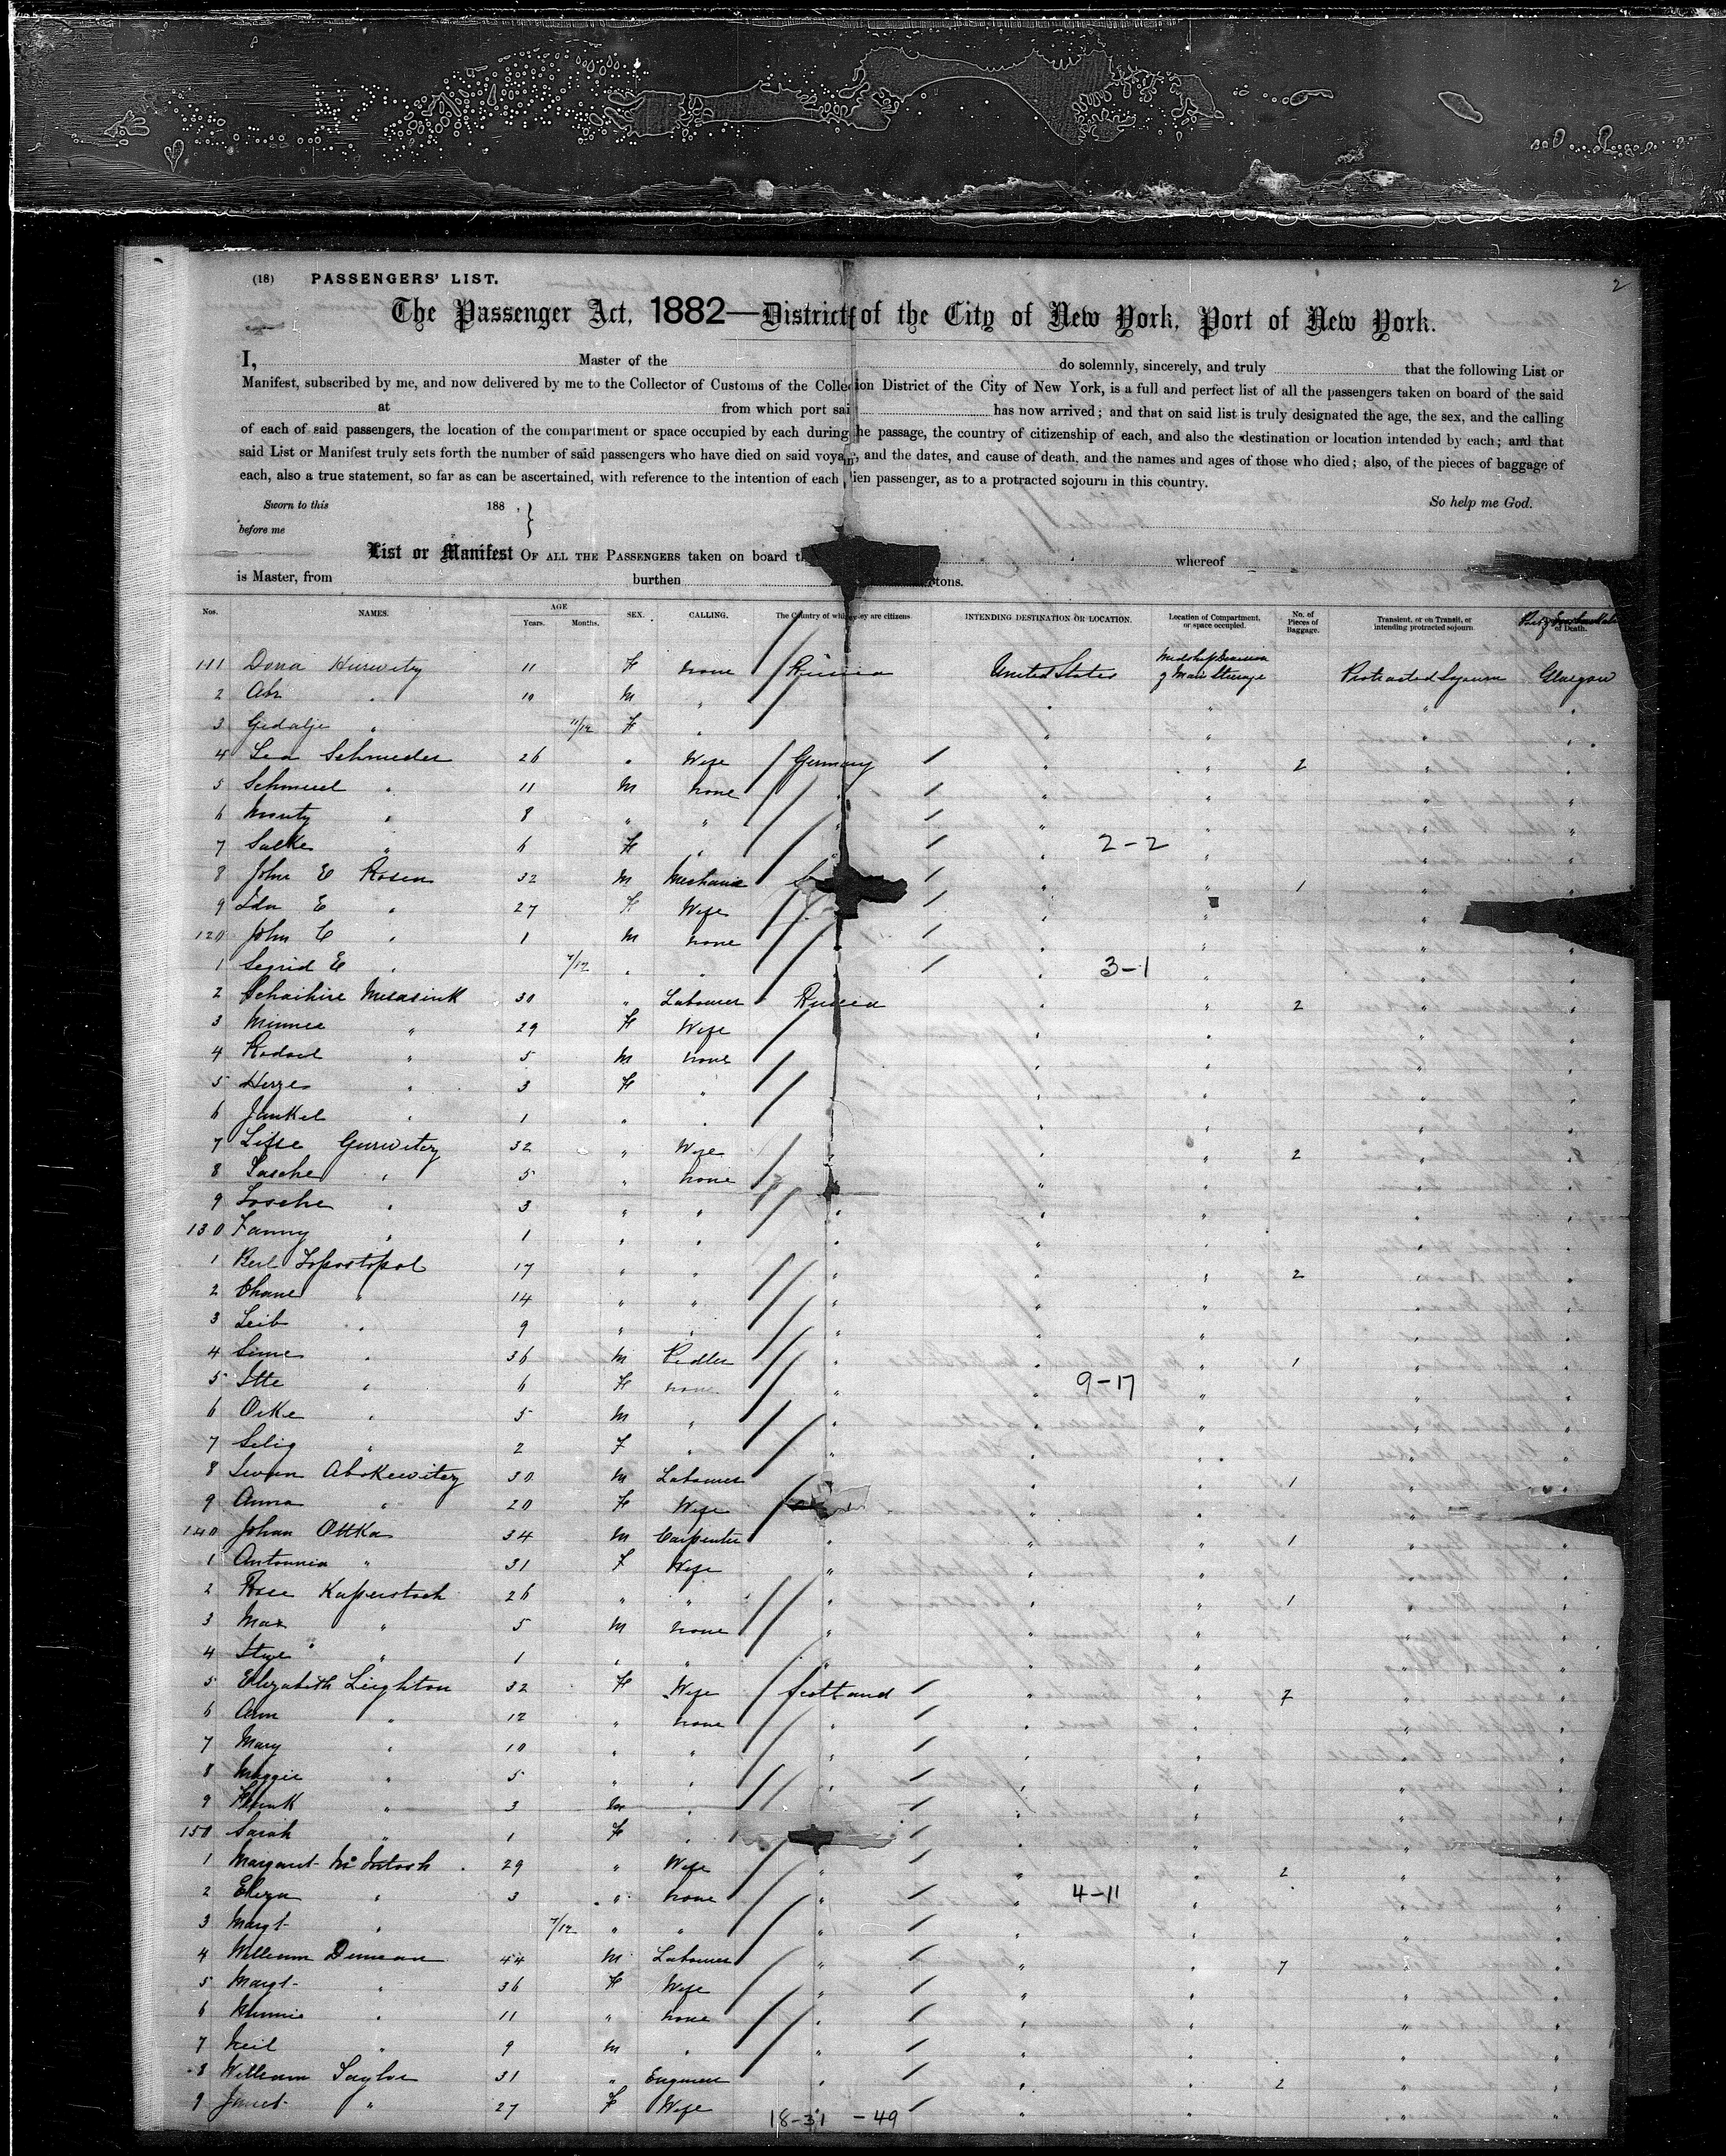 2
(18) PASSENGERS' LIST.
The Passenger Act, 1882—District of the City of New York, Port of New York.
I, Master of the do solemnly, sincerely, and truly that the following List or
Manifest, subscribed by me, and now delivered by me to the Collector of Customs of the Collection District of the City of New York, is a full and perfect list of all the passengers taken on board of the said
at from which port sai has now arrived; and that on said list is truly designated the age, the sex, and the calling
of each of said passengers, the location of the compartment or space occupied by each during he passage, the country of citizenship of each, and also the destination or location intended by each; and that
said List or Manifest truly sets forth the number of said passengers who have died on said voya, and the dates, and cause of death, and the names and ages of those who died; also, of the pieces of baggage of
each, also a true statement, so far as can be ascertained, with reference to the intention of each lien passenger, as to a protracted sojourn in this country.
Sworn to this 188 , So help me God.
before me
List or Manifest OF ALL THE PASSENGERS taken on board t whereof
is Master, from burthen tons.
Nos. NAMES. AGE Years. Months. SEX. CALLING. The Country of which they are citizens INTENDING DESTINATION OR LOCATION. Location of Compartment, or space occupied. No. of Pieces of Baggage. Transient, or on Transit, or intending protracted sojourn. of Death.
111 Dona Hurwitz 11 F none Russia United States of Main Steerage Protracted Sojourn Glasgow
2 Abr " 10 M "
3 Gedalje " 11/12 F "
4 Lea Schmieder 26 " Wife Germany 2
5 Schmuel " 11 M none
6 Moritz " 8 " "
7 Salke " 6 F " 2-2
8 John E Rosen 32 M Mechanic 1
9 Ida E " 27 F Wife
120 John C " 1 M none
1 Segrid E " 7/12 " " 3-1
2 30 " Labourer Russia 2
3 Minnie " 29 F Wife
4 " 5 M none
5 " 3 F "
6 Jankel " 1 " "
7 Gurwitz 32 " Wife 2
8 Sasche " 5 " none
9 Sosche " 3 " "
130 Fanny " 1 " "
1 Berl 17 " " 2
2 Chane " 14 " "
3 Leib " 9 " "
4 Sime " 36 M Pedler 1
5 Itte " 6 F none 9-17
6 " 5 M "
7 Selig " 2 F "
8 30 M Labourer 1
9 Anna " 20 F Wife
140 Johan Ottka 34 M Carpenter 1
1 Antonnia " 31 F Wife
2 Rose Kaperstock 26 " " 1
3 Max " 5 M none
4 " 1 " "
5 Elizabeth Leighton 32 F Wife Scotland 7
6 Ann " 12 " none
7 Mary " 10 " "
8 Maggie " 5 " "
9 Frank " 3 M "
150 Sarah " 1 F "
1 Margaret McIntosh 29 " Wife 2
2 Eliza " 3 " none 4-11
3 Margt " 7/12 " "
4 William Duncan 44 M Labourer 7
5 Margt " 36 F Wife
6 " 11 " none
7 Neil " 9 M "
8 William Taylor 31 " Engineer 2
9 Janet " 27 F Wife
18-31 -49